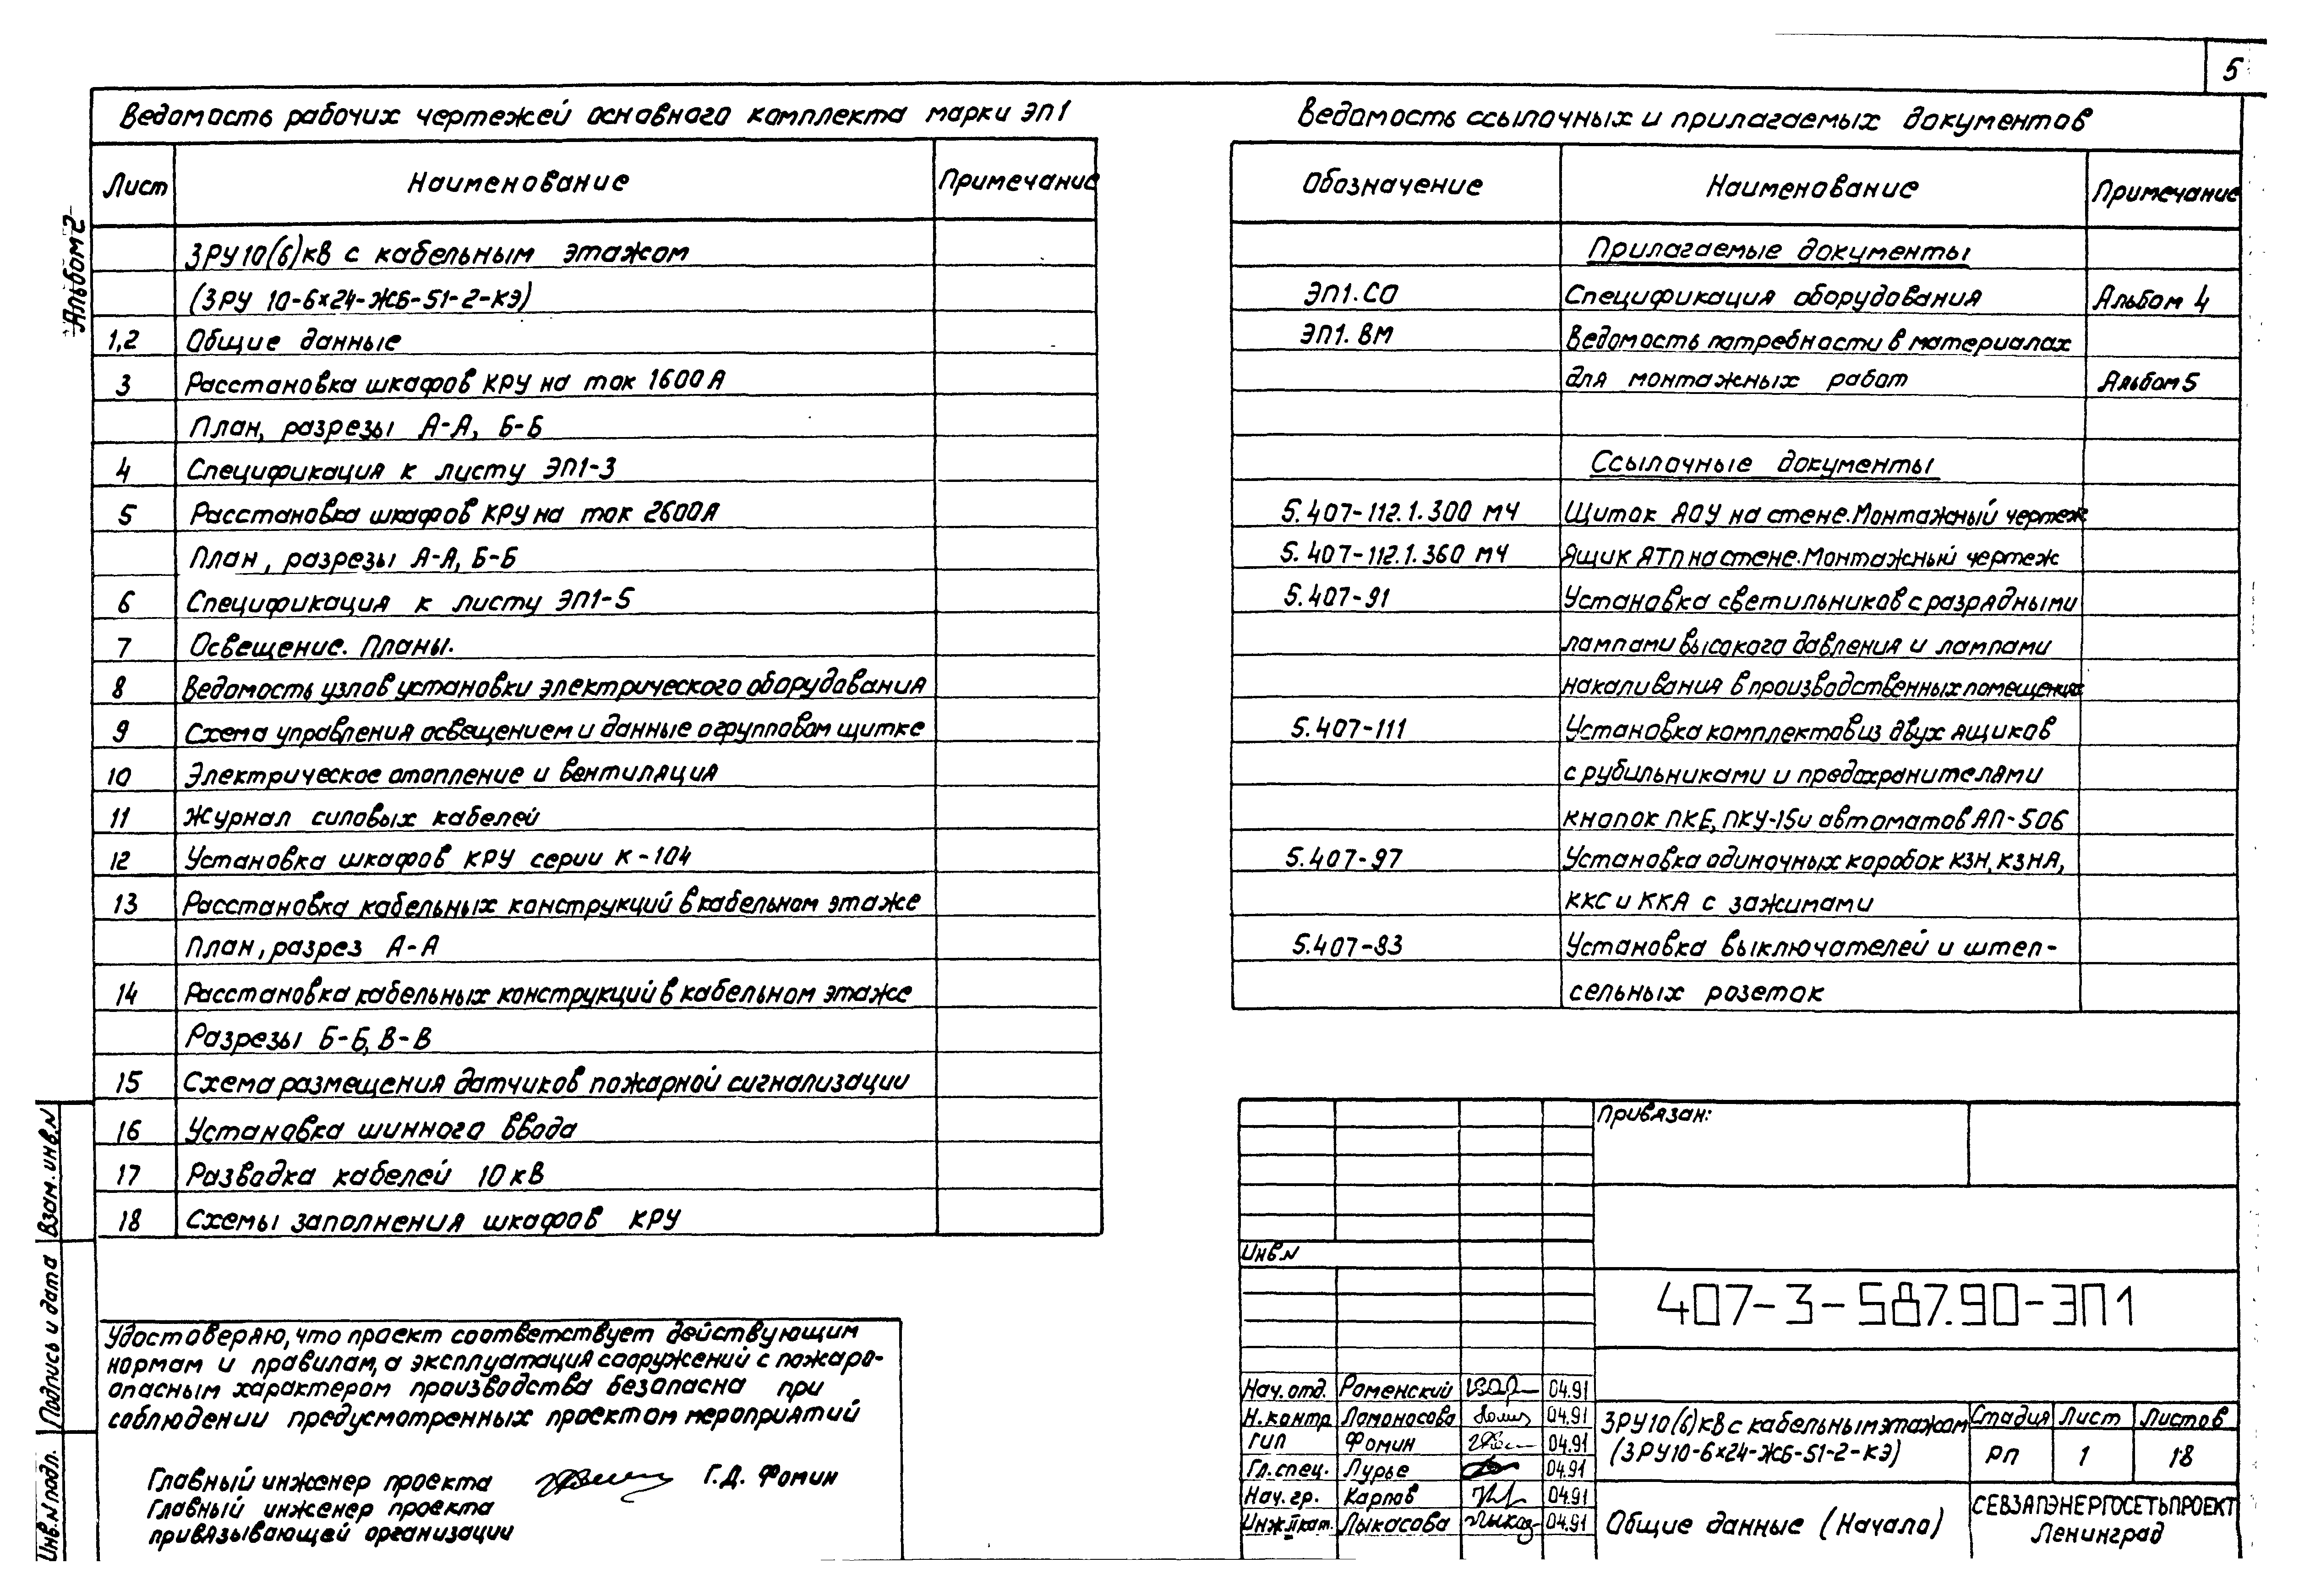 5
Альбом 2
Ведомость рабочих чертежей основного комплекта марки ЭП1
Лист Наименование Примечание
ЗРУ10(6)кВ с кабельным этажом
(ЗРУ 10-6х24-ЖБ-51-2-КЭ)
1,2 Общие данные
3 Расстановка шкафов КРУ на ток 1600А
План, разрезы А-А, Б-Б
4 Спецификация к листу ЭП1-3
5 Расстановка шкафов КРУ на ток 2600А
План, разрезы А-А, Б-Б
6 Спецификация к листу ЭП1-5
7 Освещение. Планы.
8 Ведомость узлов установки электрического оборудования
9 Схема управления освещением и данные о групповом щитке
10 Электрическое отопление и вентиляция
11 Журнал силовых кабелей
12 Установка шкафов КРУ серии К-104
13 Расстановка кабельных конструкций в кабельном этаже
План, разрез А-А
14 Расстановка кабельных конструкций в кабельном этаже
Разрезы Б-Б, В-В
15 Схема размещения датчиков пожарной сигнализации
16 Установка шинного ввода
17 Разводка кабелей 10кВ
18 Схемы заполнения шкафов КРУ
Удостоверяю, что проект соответствует действующим
нормам и правилам, а эксплуатация сооружений с пожаро-
опасным характером производства безопасна при
соблюдении предусмотренных проектом мероприятий
Главный инженер проекта Г.Д. Фомин
Главный инженер проекта
привязывающей организации
Взам. инв.N
Подпись и дата
Инв.N подл.
Ведомость ссылочных и прилагаемых документов
Обозначение Наименование Примечание
Прилагаемые документы
ЭП1.СО Спецификация оборудования Альбом 4
ЭП1.ВМ Ведомость потребности в материалах
для монтажных работ Альбом 5
Ссылочные документы
5.407-112.1.300 МЧ Щиток ЯОУ на стене. Монтажный чертеж
5.407-112.1.360 МЧ Ящик ЯТП на стене. Монтажный чертеж
5.407-91 Установка светильников с разрядными
лампами высокого давления и лампами
накаливания в производственных помещениях
5.407-111 Установка комплектов из двух ящиков
с рубильниками и предохранителями
кнопок ПКЕ, ПКУ-15 и автоматов АП-50Б
5.407-97 Установка одиночных коробок КЗН, КЗНА,
ККС и ККА с зажимами
5.407-83 Установка выключателей и штеп-
сельных розеток
Привязан:
Инв.N
407-3-587.90-ЭП1
Нач. отд. Роменский 04.91
Н.контр Ломоносова 04.91
ГИП Фомин 04.91
Гл. спец. Лурье 04.91
Нач. гр. Карпов 04.91
Инж.II кат. Лыкасова 04.91
ЗРУ10(6)кВ с кабельным этажом
(ЗРУ10-6х24-ЖБ-51-2-КЭ)
Стадия Лист Листов
РП 1 18
Общие данные (Начало)
СЕВЗАПЭНЕРГОСЕТЬПРОЕКТ
Ленинград